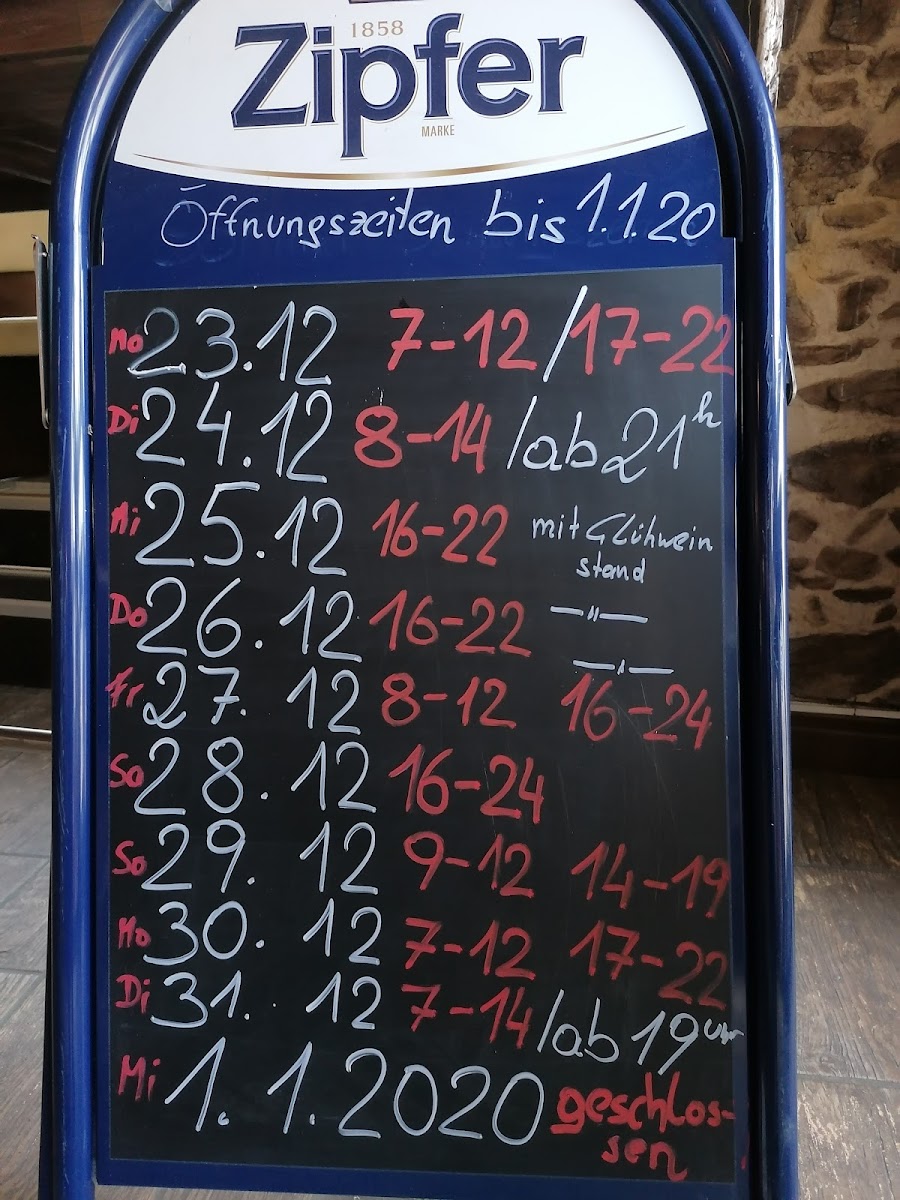 1858
Zipfer
MARKE
Öffnungszeiten bis 1.1.20
Mo 23.12 7-12/17-22
Di 24.12 8-14 /ab 21h
Mi 25.12 16-22 mit Glühwein
stand
Do 26.12 16-22 —"—
—"—
Fr 27. 12 8-12 16-24
So 28. 12 16-24
So 29. 12 9-12 14-19
Mo 30. 12 7-12 17-22
Di 31. 12 7-14/ab 19 Uhr
Mi 1. 1. 2020 geschlos-
sen